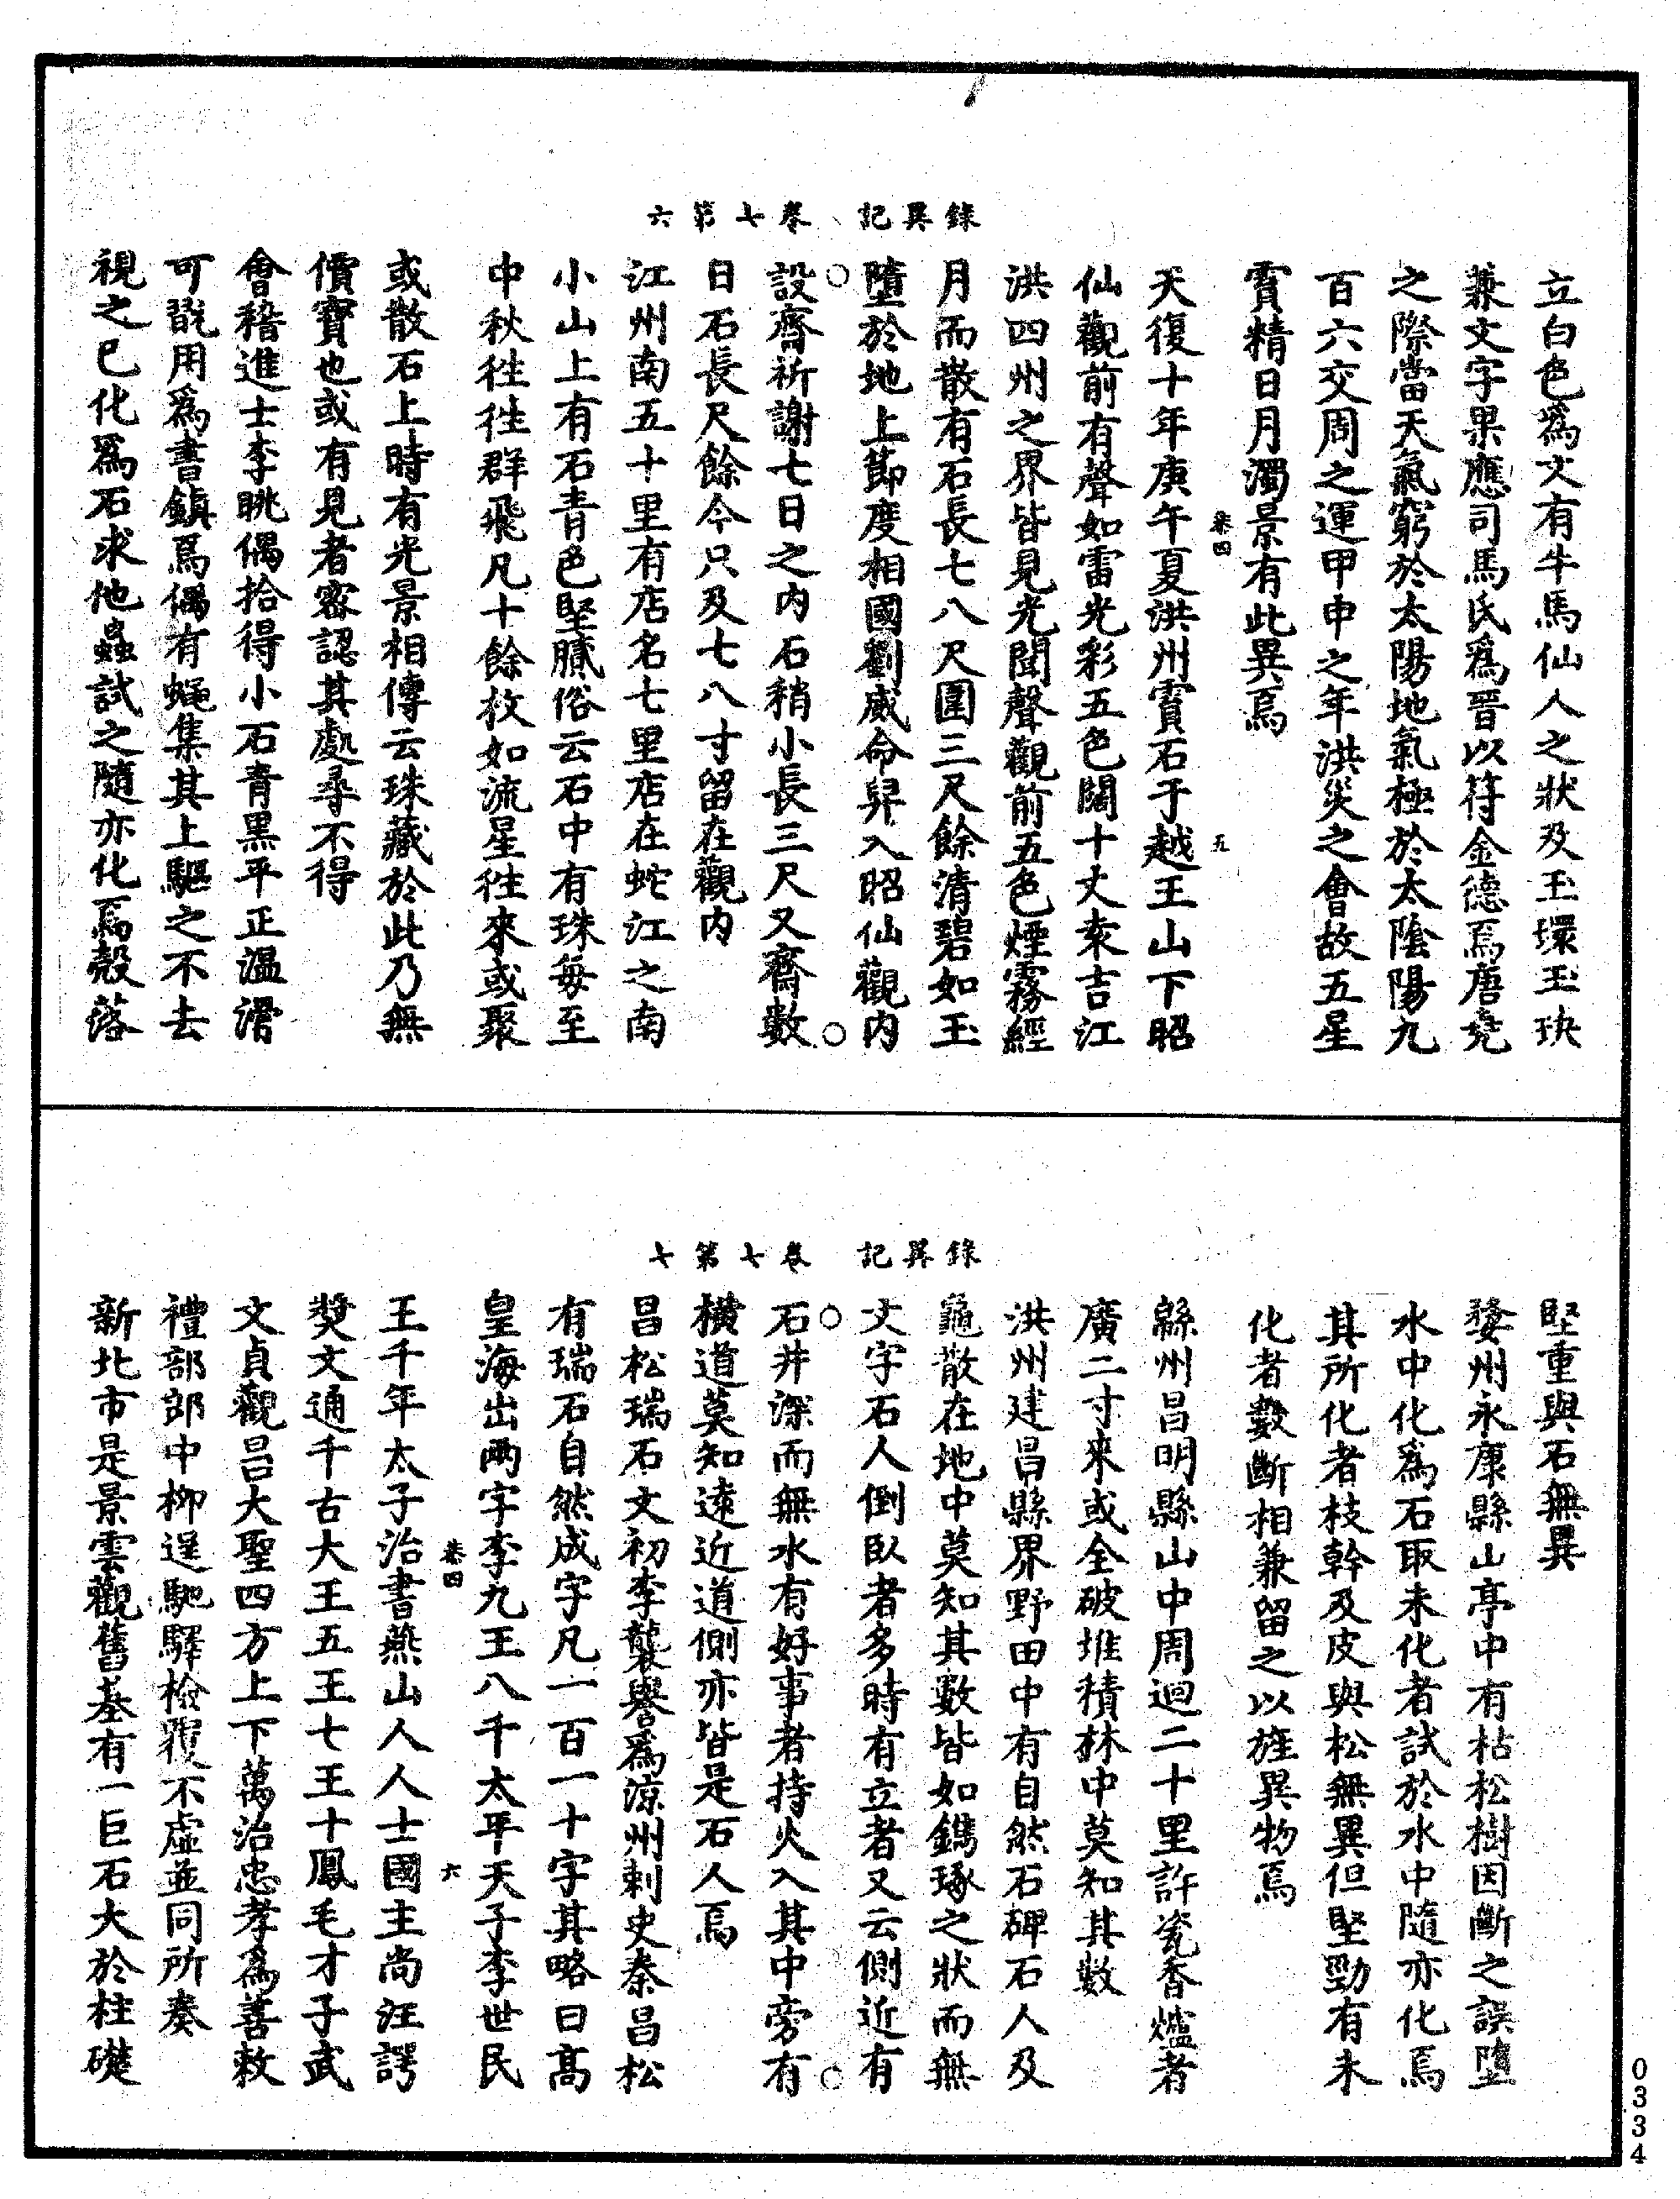 錄異記　卷七第六
立白色爲文有牛馬仙人之狀及玉環玉玦
兼文字果應司馬氏爲晉以符金德焉唐堯
之際當天氣窮於太陽地氣極於太陰陽九
百六交周之運甲申之年洪災之會故五星
賈精日月濁景有此異焉
糸四　五
天復十年庚午夏洪州賈石于越王山下昭
仙觀前有聲如雷光彩五色闊十丈袁吉江
洪四州之界皆見光聞聲觀前五色煙霧經
月而散有石長七八尺圍三尺餘清碧如玉
墮於地上節度相國劉威命舁入昭仙觀内
設齋祈謝七日之内石稍小長三尺又齋數
日石長尺餘今只及七八寸留在觀内
江州南五十里有店名七里店在蛇江之南
小山上有石青色堅膩俗云石中有珠每至
中秋徃徃群飛凡十餘枚如流星徃來或聚
或散石上時有光景相傳云珠藏於此乃無
價寶也或有見者密認其處尋不得
會稽進士李眺偶拾得小石青黑平正溫滑
可翫用爲書鎮焉偶有蠅集其上驅之不去
視之已化爲石求他蟲試之隨亦化焉殼落
錄異記　卷七第七
堅重與石無異
婺州永康縣山亭中有枯松樹因斷之誤墮
水中化爲石取未化者試於水中隨亦化焉
其所化者枝幹及皮與松無異但堅勁有未
化者數斷相兼留之以旌異物焉
緜州昌明縣山中周迴二十里許瓷香爐者
廣二寸來或全破堆積林中莫知其數
洪州建昌縣界野田中有自然石碑石人及
龜散在地中莫知其數皆如鐫琢之狀而無
文字石人倒臥者多時有立者又云側近有
石井深而無水有好事者持火入其中旁有
橫道莫知遠近道側亦皆是石人焉
昌松瑞石文初李襲譽爲涼州刺史奏昌松
有瑞石自然成字凡一百一十字其略曰高
皇海出兩字李九王八千太平天子李世民
糸四　六
王千年太子治書燕山人人士國主尚汪諤
奬文通千古大王五王七王十鳳毛才子武
文貞觀昌大聖四方上下萬治忠孝爲善敕
禮部郎中柳逞馳驛檢覆不虛並同所奏
新北市是景雲觀舊基有一巨石大於柱礎
0334